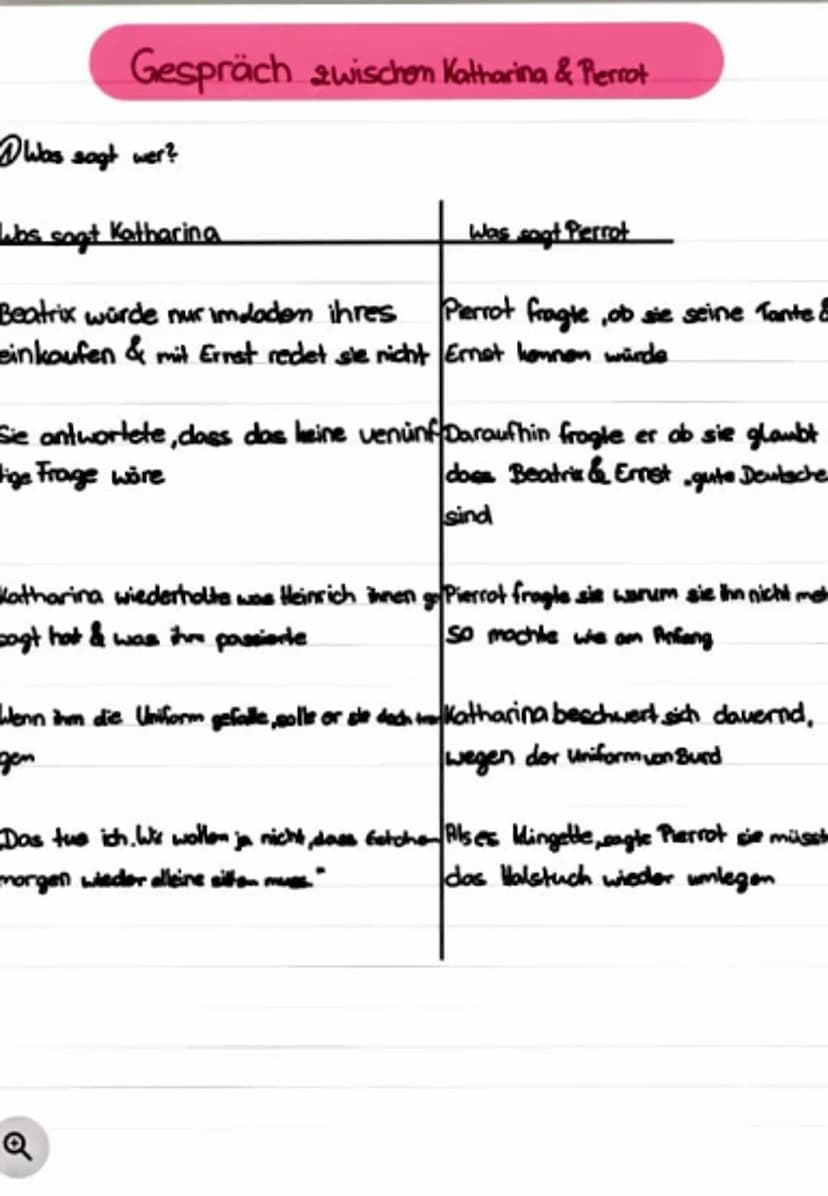 Gespräch zwischen Katharina & Pierrot
① Was sagt wer?
Was sagt Katharina
Was sagt Pierrot
Beatrix würde nur imdaden ihres
einkaufen & mit Ernst redet sie nicht
Pierrot fragte, ob sie seine Tante &
Ernst kennen würde
Sie antwortete, dass das keine venünf
tige Frage wäre
Daraufhin fragte er ob sie glaubt
dass Beatrix & Ernst „gute Deutsche
sind
Katharina wiederholte was Heinrich ihnen ge
sagt hat & was ihm passierte
Pierrot fragte sie warum sie ihn nicht meh
so mochte wie am Anfang
Wenn ihm die Uniform gefalle, solle er sie doch
gen
Katharina beschwert sich dauernd,
wegen der Uniform von
„Das tue ich. Wir wollen ja nicht, dass
morgen wieder alleine sitzen muss."
Als es klingelte, sagte Pierrot sie müsst
das Halstuch wieder umlegen